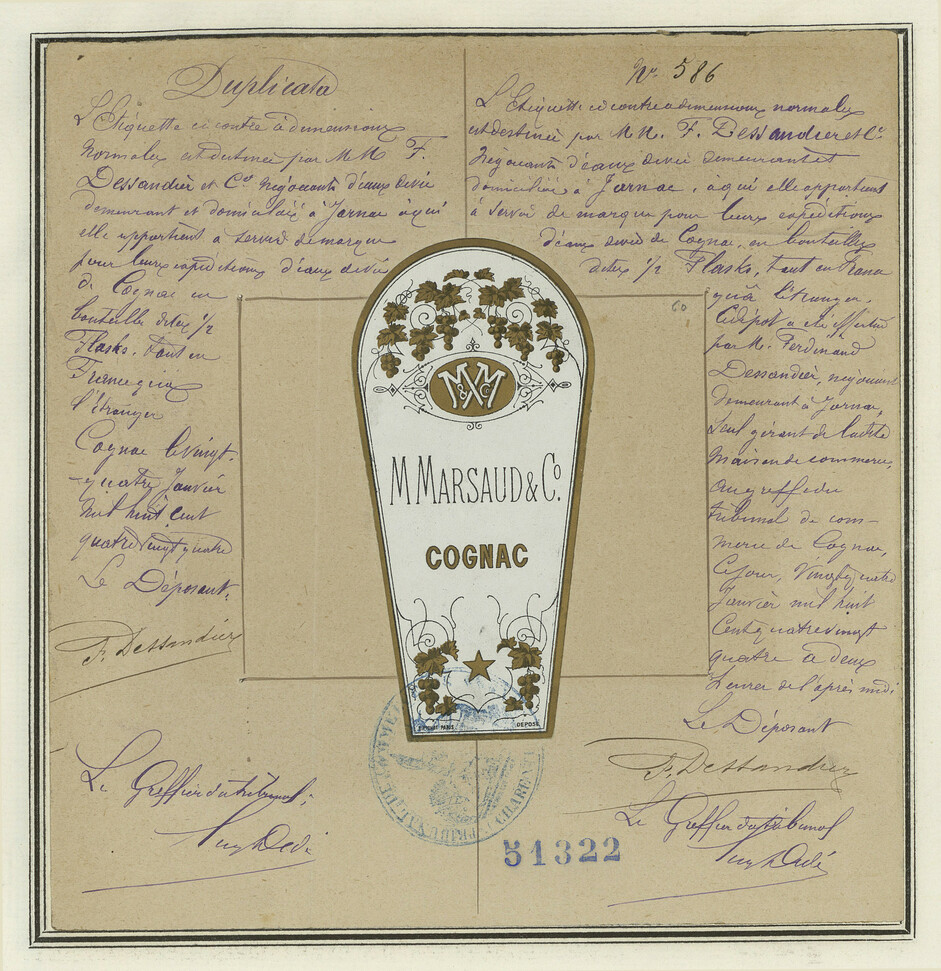 Duplicata
L'Etiquette ci contre à dimensions
normales est destinée par MM F.
Dessandier et Co négociants d'eaux de vie
demeurant et domiciliés à Jarnac à qui
elle appartient à servir de marque
pour leurs expéditions d'eaux de vie
de Cognac en
bouteille dites 1/2
Flasks, tant en
France qu'à
l'étranger
Cognac le vingt-
quatre Janvier
mil huit cent
quatre vingt quatre
Le Déposant,
F. Dessandier
Le Greffier du tribunal,
No 586
L'Etiquette ci contre à dimensions normales
est destinée par MM. F. Dessandier et Ce
négociants d'eaux de vie demeurant et
domiciliés à Jarnac, à qui elle appartient
à servir de marque pour leurs expéditions
d'eaux de vie de Cognac, en bouteilles
dites 1/2 Flasks, tant en France
qu'à l'étranger.
Ce dépôt a été effectué
par M. Ferdinand
Dessandier, négociant
demeurant à Jarnac,
seul gérant de ladite
maison de commerce,
au greffe du
tribunal de com-
merce de Cognac,
ce jour, vingt quatre
Janvier mil huit
cent quatre vingt
quatre à deux
heures de l'après midi
Le Déposant
F. Dessandier
Le Greffier du tribunal
60
M&MC
M. MARSAUD & Co.
COGNAC
DÉPOSÉ
TRIBUNAL DE COMMERCE
CHARENTE
51322